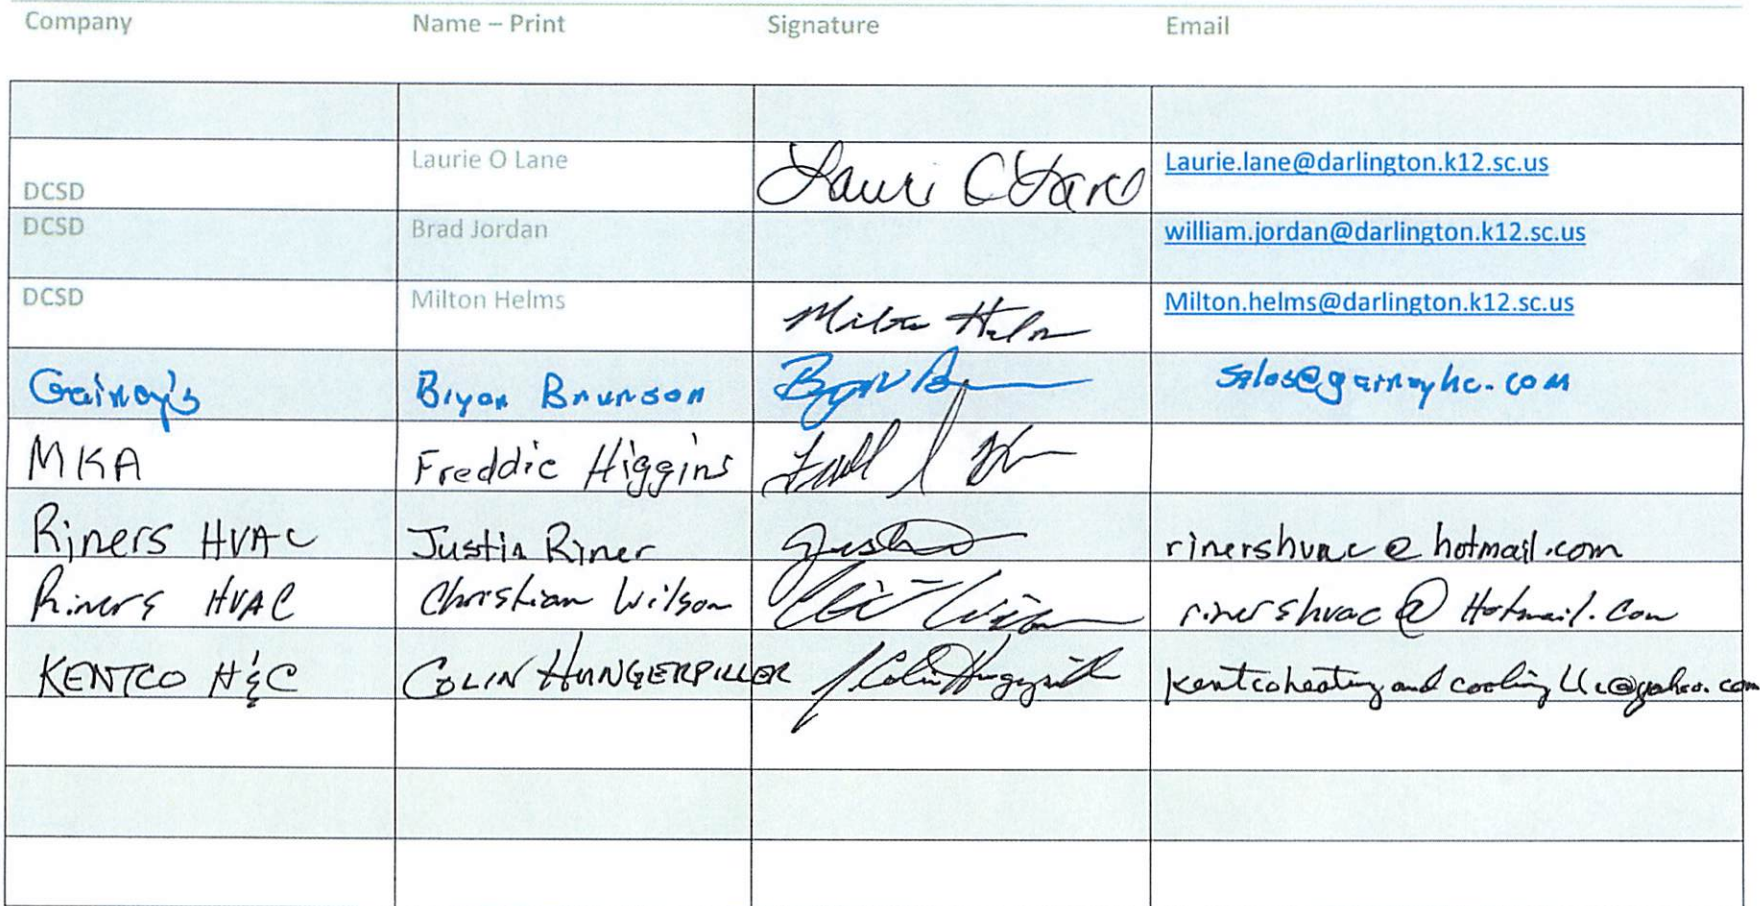 Company Name – Print Signature Email
Laurie O Lane Laurie.lane@darlington.k12.sc.us
DCSD
DCSD Brad Jordan william.jordan@darlington.k12.sc.us
DCSD Milton Helms Milton Helms Milton.helms@darlington.k12.sc.us
Gainey's Bryan Brunson sales@gaineyhc.com
MKA Freddie Higgins
Riners HVAC Justin Riner rinershvac@hotmail.com
Riners HVAC Christian Wilson rinershvac@Hotmail.com
KENTCO H&C COLIN HUNGERPILLER kentcoheatingandcoolingllc@yahoo.com